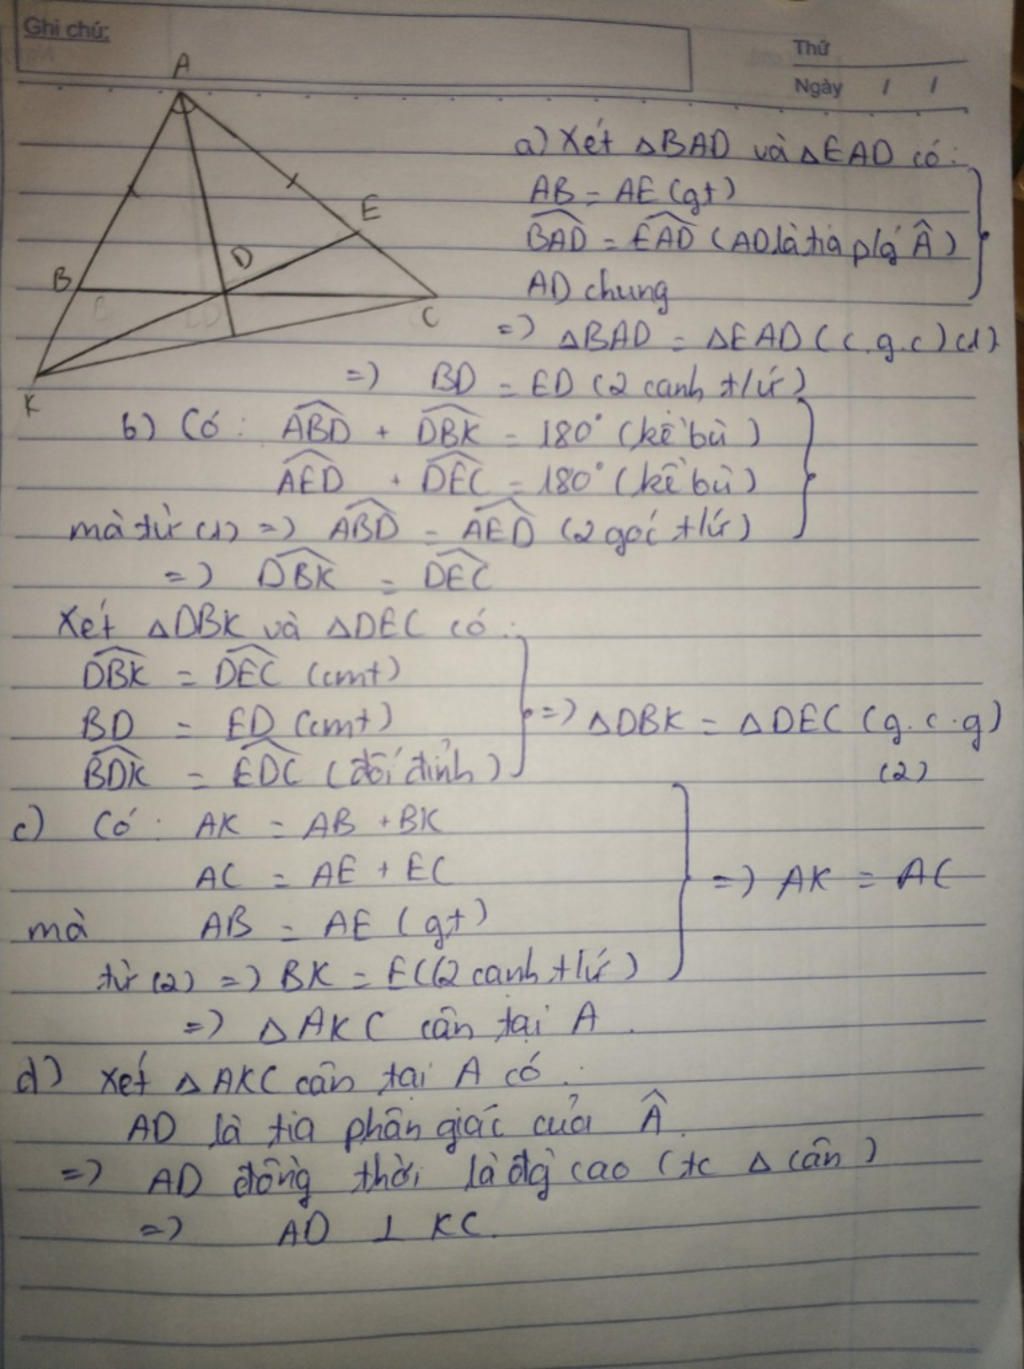 Ghi chú:
Thứ
Ngày / /
A
E
D
B
C
K
a) Xét ΔBAD và ΔEAD có:
AB = AE (gt)
BAD^ = EAD^ (AD là tia p/g Â)
AD chung
=> ΔBAD = ΔEAD (c.g.c) (1)
=> BD = ED (2 cạnh t/ứ)
b) Có: ABD^ + DBK^ = 180° (kề bù)
AED^ + DEC^ = 180° (kề bù)
mà từ (1) => ABD^ = AED^ (2 góc t/ứ)
=> DBK^ = DEC^
Xét ΔDBK và ΔDEC có:
DBK^ = DEC^ (cmt)
BD = ED (cmt)
BDK^ = EDC^ (đối đỉnh)
=> ΔDBK = ΔDEC (g.c.g)
(2)
c) Có: AK = AB + BK
AC = AE + EC
mà AB = AE (gt)
từ (2) => BK = EC (2 cạnh t/ứ)
=> AK = AC
=> ΔAKC cân tại A.
d) Xét ΔAKC cân tại A có:
AD là tia phân giác của Â.
=> AD đồng thời là đg cao (tc Δ cân)
=> AD ⊥ KC.